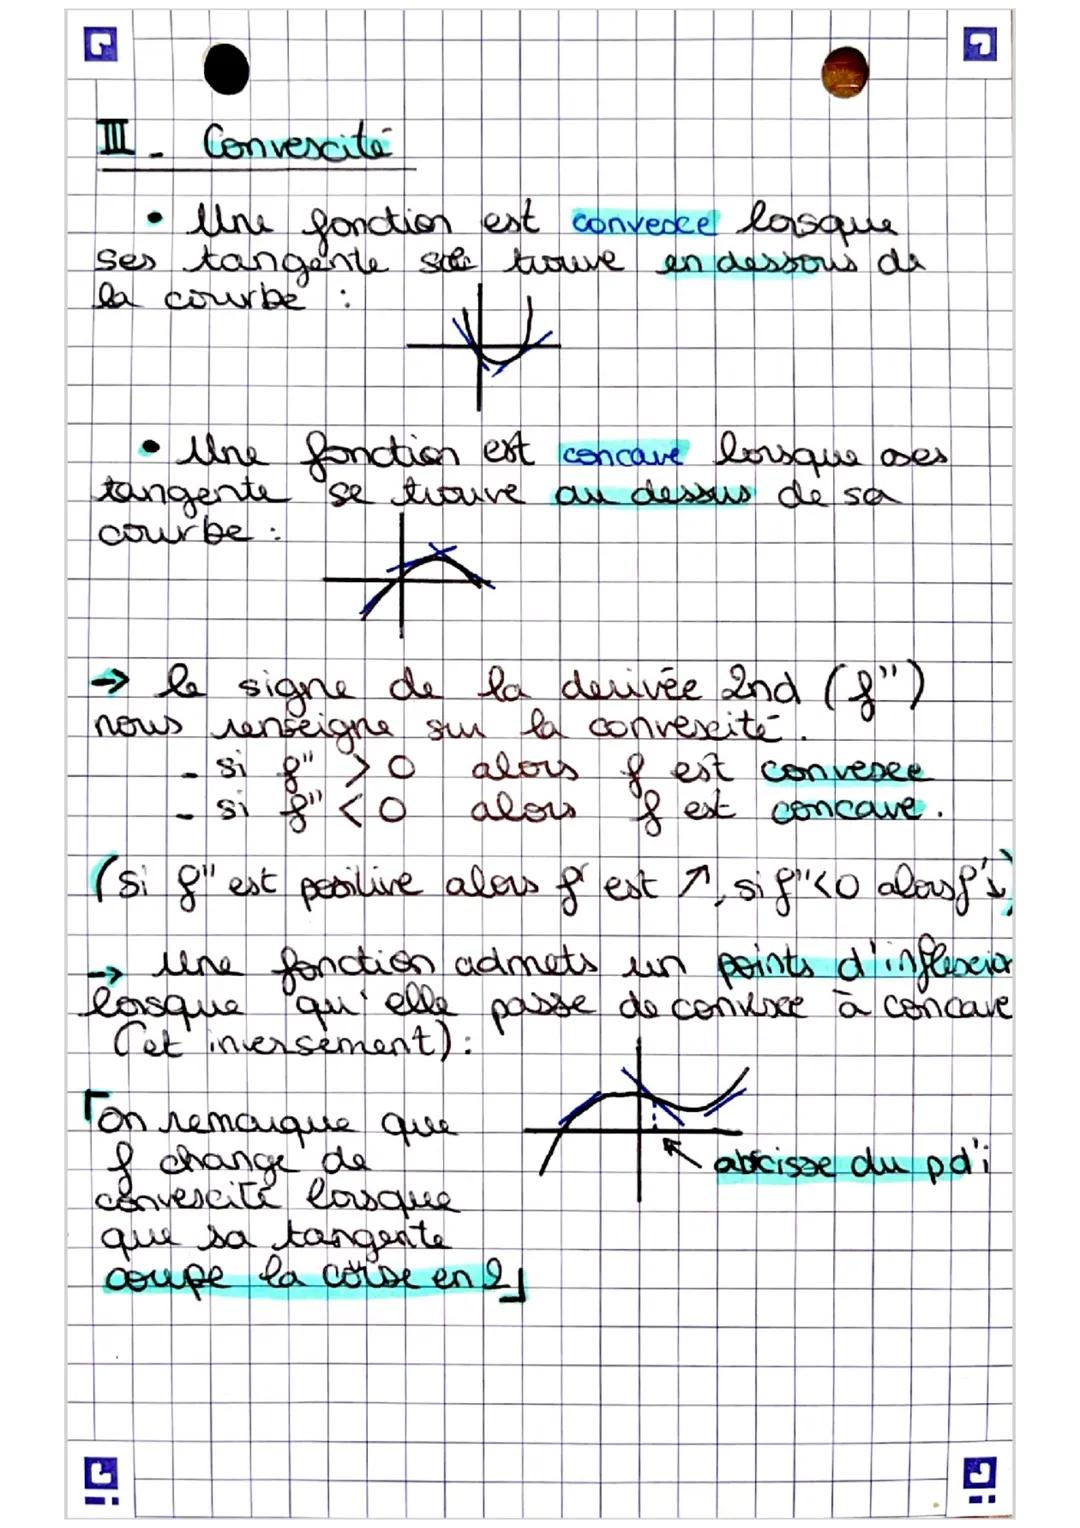 III - Convexcité
• Une fonction est convexce lorsque
ses tangente se trouve en dessous de
la courbe :
• Une fonction est concave lorsque ses
tangente se trouve au dessus de sa
courbe :
→ le signe de la derivée 2nd (f")
nous renseigne sur la convexcité.
- si f" > 0 alors f est convexce
- si f" < 0 alors f est concave.
(si f" est positive alors f' est ↗, si f"<0 alors f'↘)
→ Une fonction admets un points d'inflexcion
lorsque qu'elle passe de convexce à concave
(et inversement):
⌈on remarque que
f change de
convexcité lorsque
que sa tangente
coupe la corbe en 2⌋
abscisse du pd'i